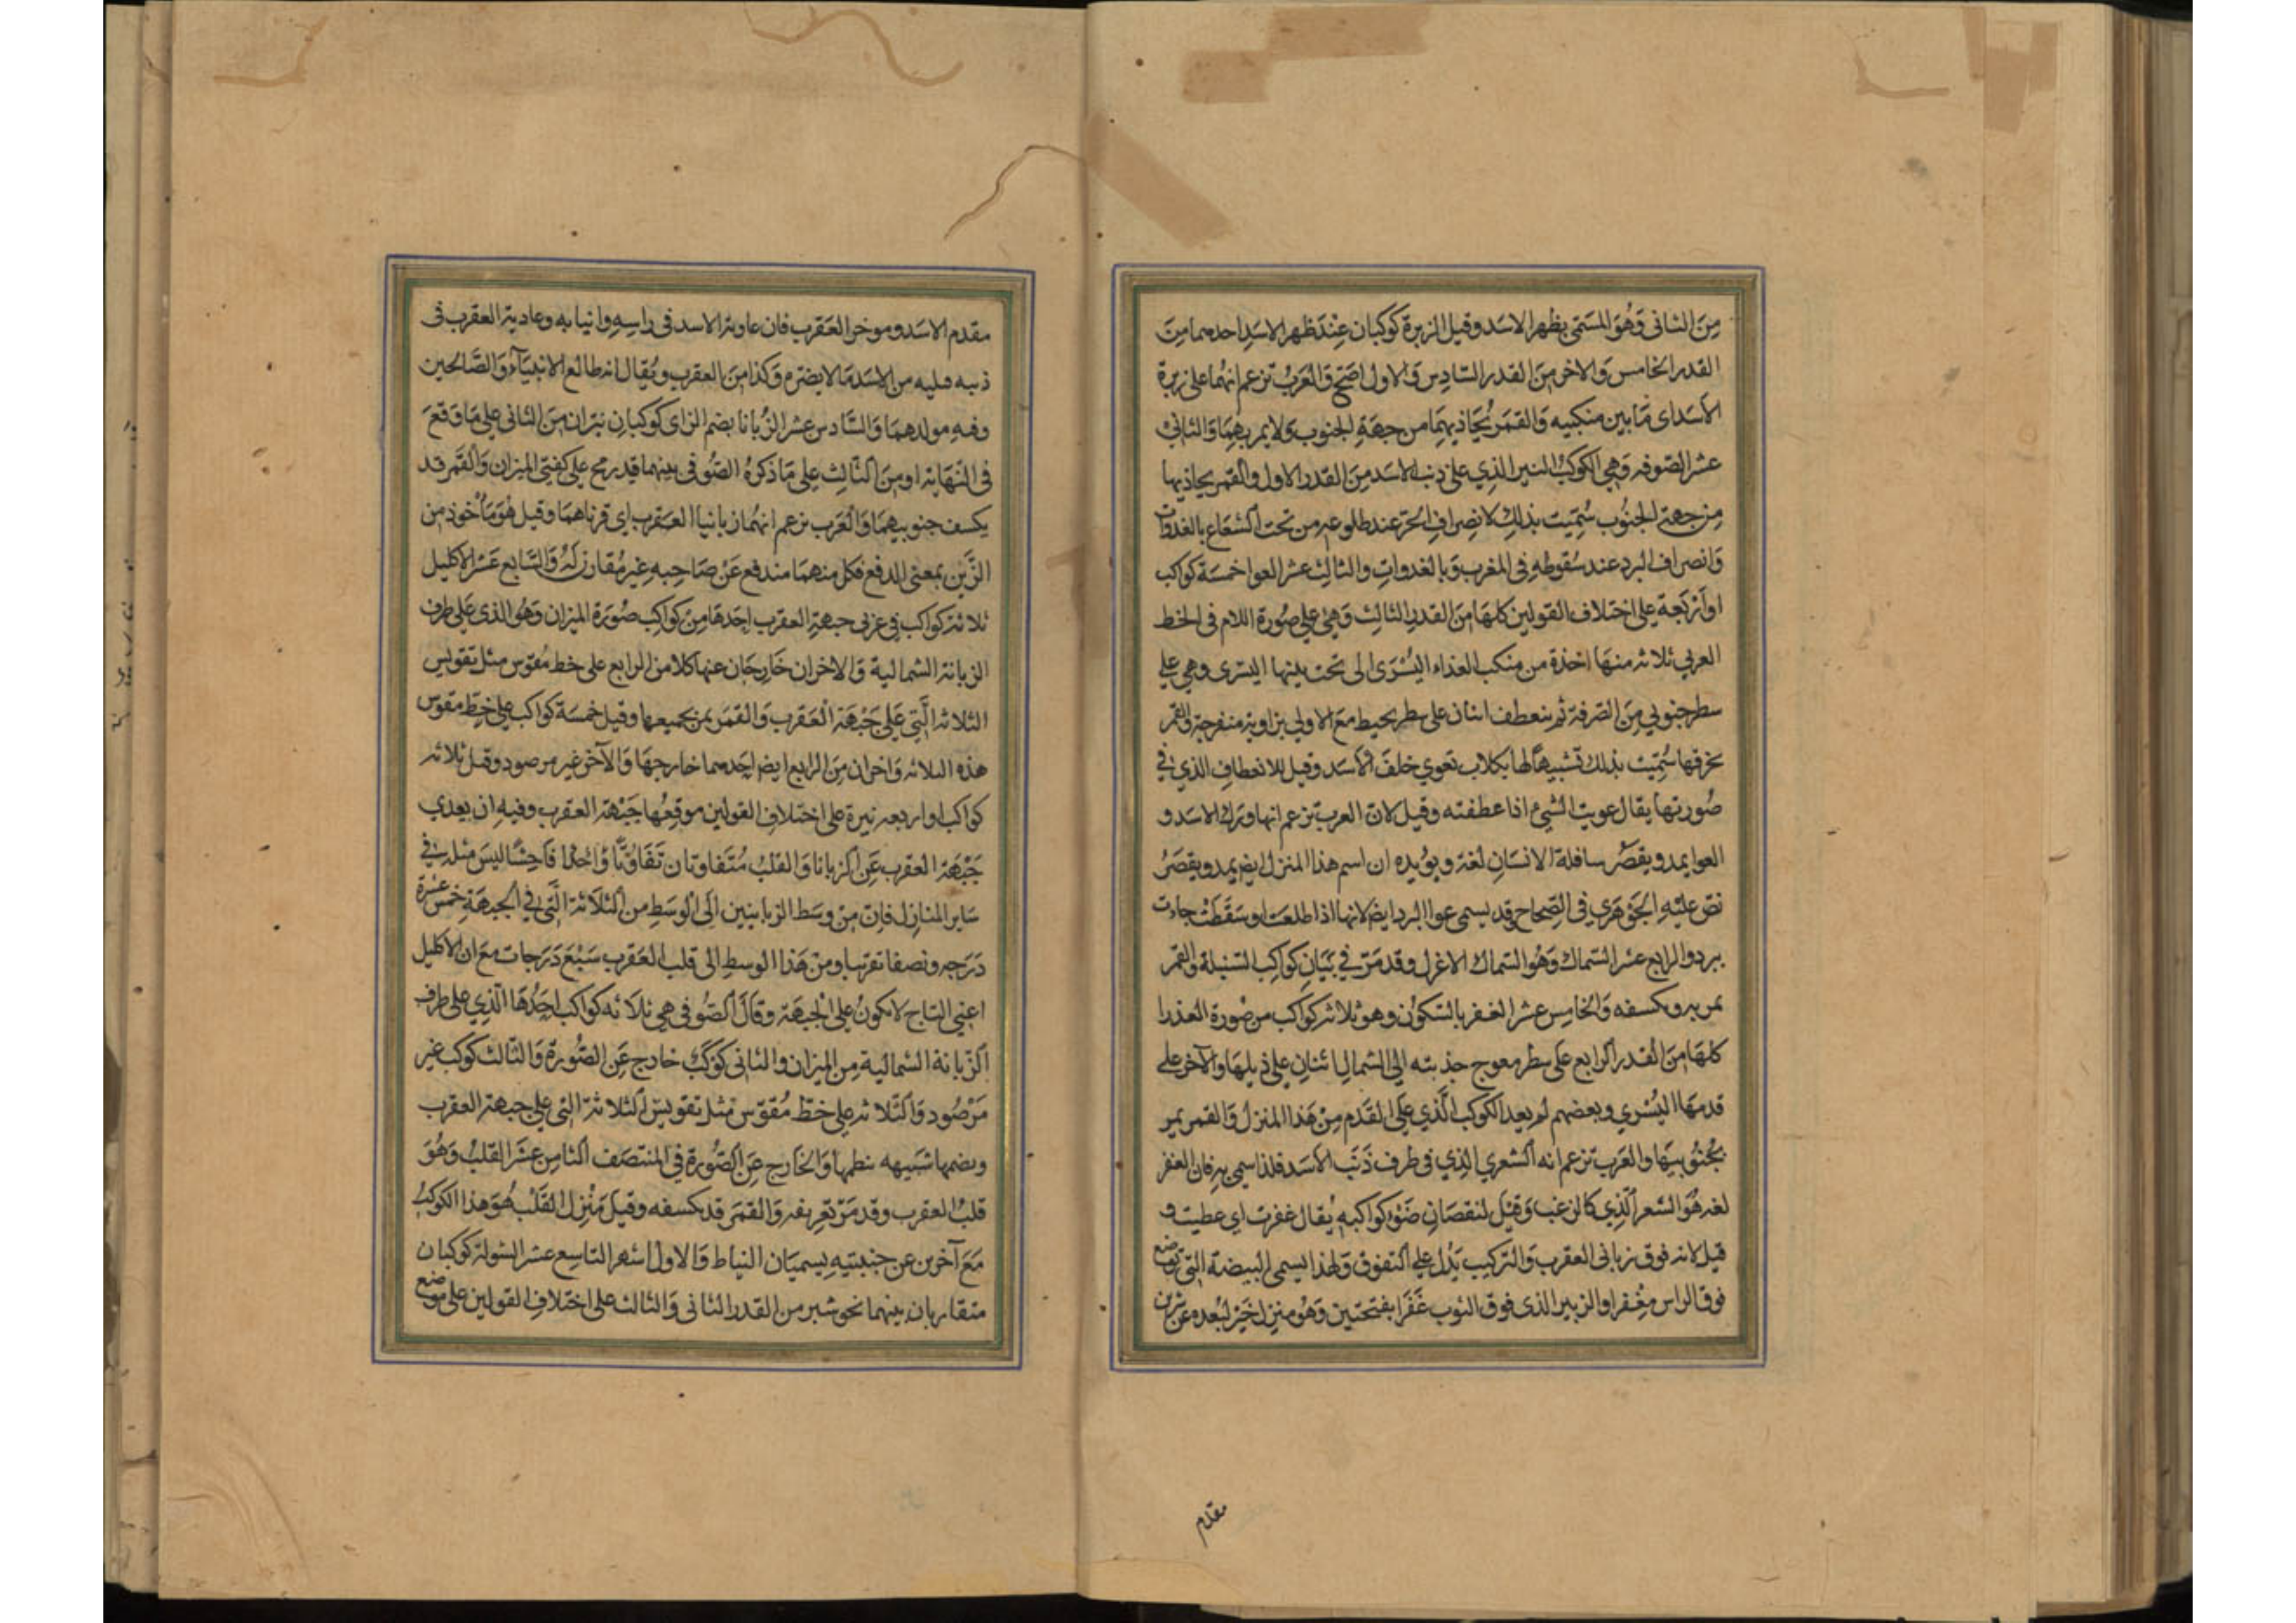 من الثانى وهو المسمى بظهر الاسد وقيل الزبرة كوكبان عند ظهر الاسد احدهما من
القدر الخامس والاخر من القدر السادس والاول اصح والعرب تزعم انهما على زبرة
الاسد اى ما بين منكبيه والقمر يحاذيهما من جهة الجنوب ولا يمر بهما والثانى
عشر الصوفه وهي الكوكب النير الذي على ذنب الاسد من القدر الاول والقمر يحاذيها
من جهة الجنوب سميت بذلك لانصراف الحر عند طلوعه من تحت الشعاع بالغدوات
وانصراف البرد عند سقوطه في المغرب وبالغدوات والثالث عشر العوا خمسة كواكب
او اربعة على اختلاف القولين كلها من القدر الثالث وهي على صورة اللام فى الخط
العربي ثلاثه منها اخذة من منكب العذراء اليسرى الى تحت يديها اليسرى وهي على
سطر جنوبي من الصرفة ثم ينعطف اثنان على سطر يحيط مع الاولى بزاوية منفرجة والقمر
يخرقها سميت بذلك تشبيها لها بكلاب تعوي خلف الاسد وقيل للانعطاف الذي في
صورتها يقال عويت الشيء اذا عطفته وقيل لان العرب تزعم انها ورك الاسد و
العوا يمد ويقصر سافلة الانسان لغة ويؤيده ان اسم هذا المنزل ايضا يمد ويقصر
نص عليه الجوهري فى الصحاح وقد يسمى عوا البرد ايضا لانها اذا طلعت او سقطت جاءت
ببرد والرابع عشر السماك وهو السماك الاعزل وقد مر في بيان كواكب السنبلة والقمر
يمر به ويكسفه والخامس عشر الغفر بالسكون وهو ثلاثة كواكب من صورة العذرا
كلها من القدر الرابع على سطر معوج حذبته الى الشمال اثنان على ذيلها والآخر على
قدمها اليسري وبعضهم لم يعد الكوكب الذي على القدم من هذا المنزل والقمر يمر
بجنوبيها والعرب تزعم انه الشعري الذي في طرف ذنب الاسد فلذا سمي به فان الغفر
لغه هو الشعر الذي كالزغب وقيل لنقصان ضوء كواكبه يقال غفرت اي غطيت و
قيل لانه فوق زباني العقرب والتركيب يدل على التفوق ولهذا يسمى البيضة التي توضع
فوق الراس مغفرا والزبير الذى فوق الثوب غفرا بفتحتين وهو منزل خير لبعده عن شرين
مقدم
مقدم الاسد وموخر العقرب فان عاوية الاسد فى راسه وانيابه وعادية العقرب فى
ذنبه فليه من الاسد ما لا يضره وكذا من العقرب ويقال انه طالع الانبياء والصالحين
وفيه مولدهما والسادس عشر الزبانا بضم الزاى كوكبان نيران من الثانى على ما وقع
فى النهاية او من الثالث على ما ذكره الصوفى بينهما قيد رمح على كفتى الميزان والقمر قد
يكسف جنوبيهما والعرب تزعم انهما زبانيا العقرب اى قرناهما وقيل هو مأخوذ من
الزبن بمعنى الدفع فكل منهما مندفع عن صاحبه غير مقارن له والسابع عشر الاكليل
ثلاثة كواكب في غربى جبهة العقرب احدها من كواكب صورة الميزان وهو الذى على طرف
الزبانة الشمالية والاخران خارجان عنها كلا من الرابع على خط مقوس مثل تقويس
الثلاثة التي على جبهة العقرب والقمر يمر بجميعها وقيل خمسة كواكب على خط مقوس
هذه الثلاثه واخران من الرابع ايضا احدهما خارجها والآخر غير مرصود وقيل ثلاثه
كواكب او اربعه نيرة على اختلاف القولين موقعها جبهة العقرب وفيه ان بعدي
جبهة العقرب عن الزبانا والقلب متفاوتان تفاوتا واحدا فاحشا ليس مثله في
ساير المنازل فان من وسط الزبانيين الى الوسط من الثلاثة التي في الجبهة خمس عشرة
درجه ونصفا تقريبا ومن هذا الوسط الى قلب العقرب سبع درجات مع ان الاكليل
اعني التاج لا يكون على الجبهة وقال الصوفى هي ثلاثه كواكب احدها الذي على طرف
الزبانة الشمالية من الميزان والثانى كوكب خارج عن الصورة والثالث كوكب غير
مرصود والثلاثة على خط مقوس مثل تقويس الثلاثة التي على جبهة العقرب
وبضمها شبيهه بنظمها والخارج عن الصورة في المنتصف الثامن عشر القلب وهو
قلب العقرب وقد مر تعريفه والقمر قد يكسفه وقيل منزل القلب هو هذا الكوكب
مع آخرين عن جنبتيه يسميان النياط والاول اشهر التاسع عشر الشولة كوكبان
متقاربان بينهما نحو شبر من القدر الثانى والثالث على اختلاف القولين على موضع